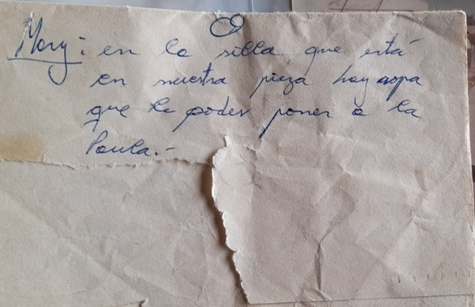 Mary: en la silla que está
en nuestra pieza hay ropa
que le podés poner a la
Paula.-